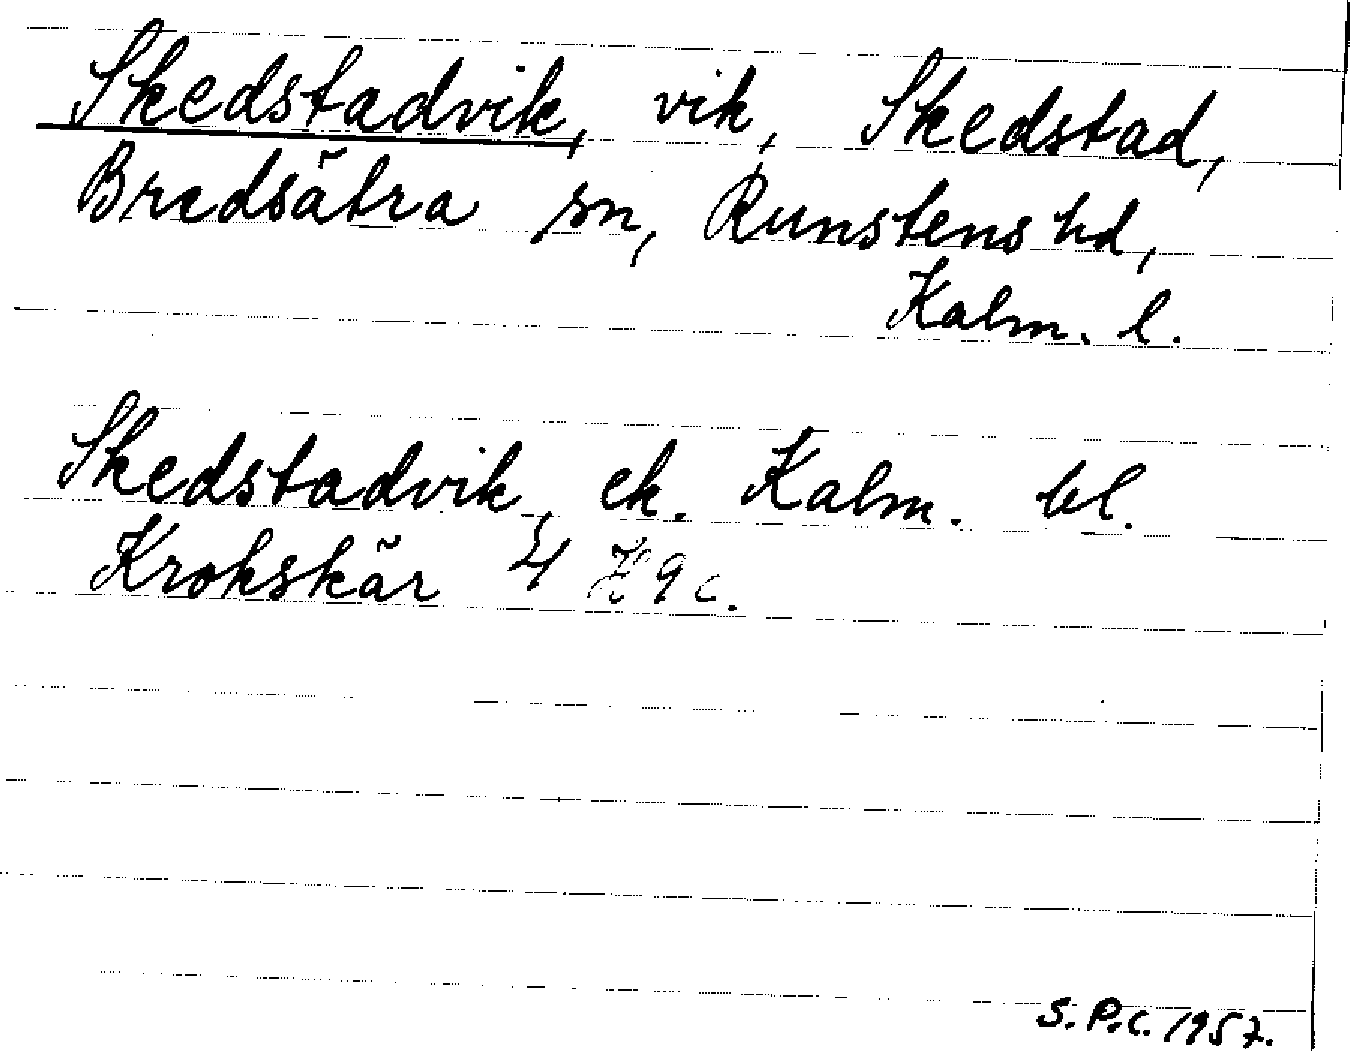 Skedstadvik, vik, Skedstad,
Bredsätra sn, Runstens hd,
Kalm. l.
Skedstadvik, ek. Kalm. bl.
Krokskär 4 H 9 c.
S.P.C. 1957.